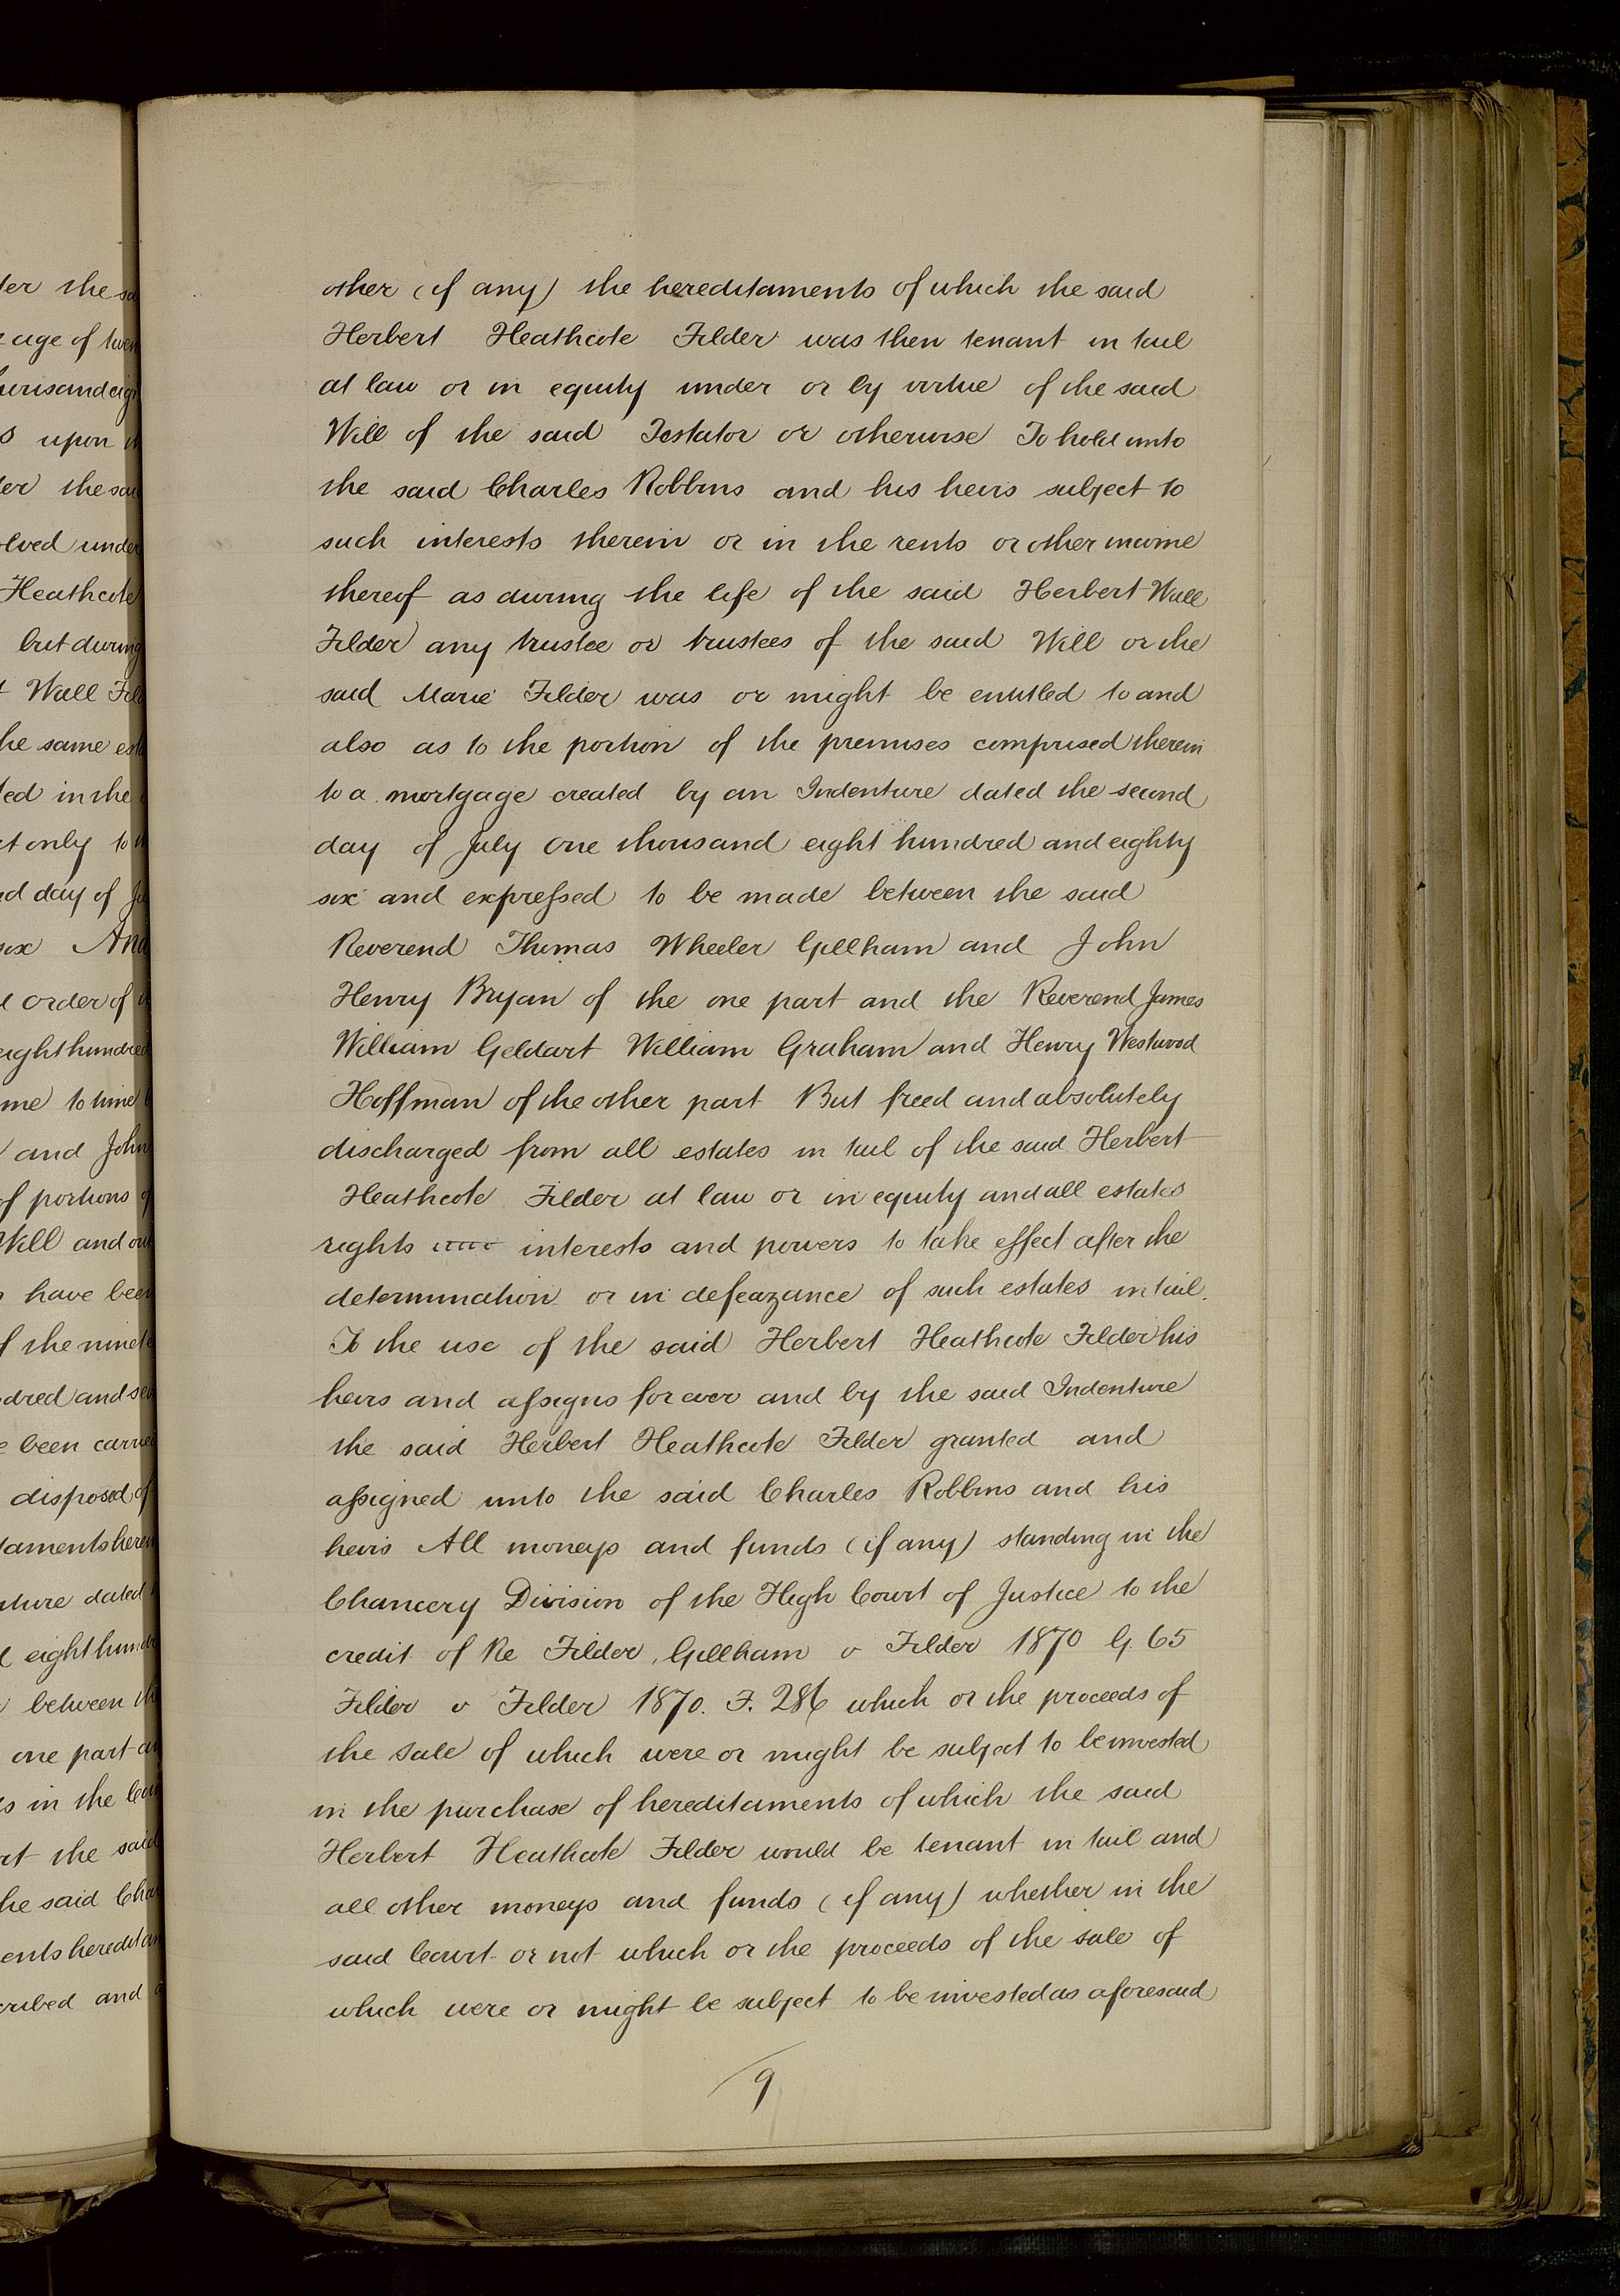 other (if any) the hereditaments of which the said
Herbert Heathcote Filder was then tenant in tail
at law or in equity under or by virtue of the said
Will of the said Testator or otherwise To hold unto
the said Charles Robbins and his heirs subject to
such interests therein or in the rents or other income
thereof as during the life of the said Herbert Wall
Filder any trustee or trustees of the said Will or the
said Marie Filder was or might be entitled to and
also as to the portion of the premises comprised therein
to a mortgage created by an Indenture dated the second
day of July One thousand eight hundred and eighty
six and expressed to be made between the said
Reverend Thomas Wheeler Gillham and John
Henry Bryan of the one part and the Reverend James
William Geldart William Graham and Henry Westwood
Hoffman of the other part But freed and absolutely
discharged from all estates in tail of the said Herbert
Heathcote Filder at law or in equity and all estates
rights interests and powers to take effect after the
determination or in defeazance of such estates in tail.
To the use of the said Herbert Heathcote Filder his
heirs and assigns for ever and by the said Indenture
the said Herbert Heathcote Filder granted and
assigned unto the said Charles Robbins and his
heirs All moneys and funds (if any) standing in the
Chancery Division of the High Court of Justice to the
credit of Re Filder, Gillham v Filder 1870 G. 65
Filder v Filder 1870. F. 286 which or the proceeds of
the sale of which were or might be subject to be invested
in the purchase of hereditaments of which the said
Herbert Heathcote Filder would be tenant in tail and
all other moneys and funds (if any) whether in the
said Court or not which or the proceeds of the sale of
which were or might be subject to be invested as aforesaid
9